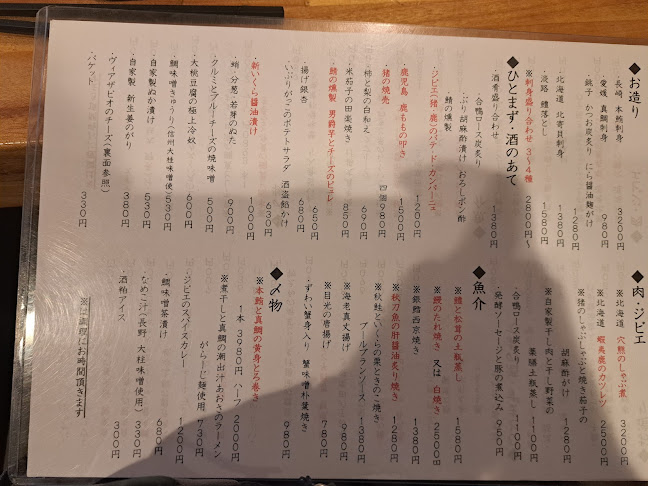 ◆お造り
・長崎 本鮪刺身 3200円
・愛媛 真鯛刺身 980円
・銚子 かつお炭炙り にら醤油麹がけ 1280円
・北海道 北寄貝刺身 1380円
・淡路 鱧落とし 1580円
※刺身盛り合わせ 3〜4種 2800円〜
◆ひとまず・酒のあて
・酒肴盛り合わせ 1380円
合鴨ロース炭炙り
ぶり胡麻酢漬け おろしポン酢
鯖の燻製
・ジビエ(猪、鹿)のパテ・ド・カンパーニュ 1200円
・鹿児島 鹿ももの叩き 1500円
・猪の焼売 四個980円
・柿と梨の白和え 690円
・米茄子の田楽焼き 850円
・鯖の燻製 男爵芋とチーズのピュレ 650円
・揚げ銀杏 680円
・いぶりがっこのポテトサラダ 酒盗餡かけ 630円
・新いくら醤油漬け 1000円
・蛸・分葱・若芽のぬた 900円
・クルミとブルーチーズの焼味噌 600円
・大桃豆腐の極上冷奴 500円
・鯛味噌きゅうり(信州大桂味噌使) 530円
・自家製ぬか漬け 530円
・自家製 新生姜のがり 380円
・ヴィアザビオのチーズ(裏面参照)
・バケット 330円
◆肉・ジビエ
※北海道 穴熊のしゃぶ煮 3200円
※北海道 蝦夷鹿のカツレツ 2500円
※猪のしゃぶしゃぶと焼き茄子の
胡麻酢がけ 1280円
※自家製干し肉と干し野菜の
薬膳土瓶蒸し 1100円
・合鴨ロース炭炙り 1100円
・発酵ソーセージと豚の煮込み 950円
◆魚介
※鱧と松茸の土瓶蒸し 1580円
※鰻のたれ焼き 又は 白焼き 2500円
※銀鱈西京焼き 1380円
※秋刀魚の肝醤油炙り焼き 1280円
※秋鮭といくらの栗ときのこ焼き
ブールブランソース 1380円
※海老真丈揚げ 980円
※目光の唐揚げ 780円
・ずわい蟹身入り 蟹味噌朴葉焼き 980円
◆〆物
※本鮪と真鯛の黄身とろ巻き
1本 3980円 ハーフ 2000円
※煮干しと真鯛の潮出汁あおさのラーメン
がらーじ麺使用 730円
・ジビエのスパイスカレー 1200円
・鯛味噌茶漬け 680円
・なめこ汁(長野 大桂味噌使用) 330円
・酒粕アイス 300円
※は調理にお時間頂きます